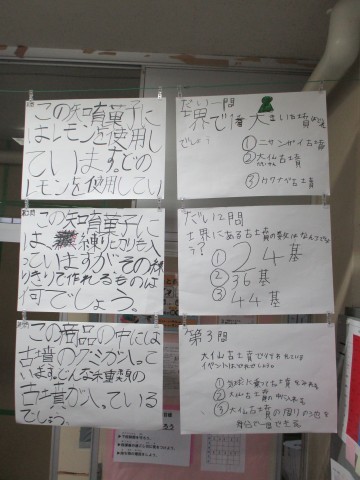 この知育菓子に
はレモンを使用し
ています。どの
レモンを使用してい
第2問
この知育菓子に
は、練りきりも入
っていますが、その練
りきりで作れるものは
何でしょう。
この商品の中には
古墳のグミが入って
います。どんな種類の
古墳が入っている
でしょう。
だい一問
堺で1番大きい古墳は
でしょう
①ニサンザイ古墳
②大仙古墳
③イタスケ古墳
だい2問
堺にある古墳の数はなんこでしょ
う?
①24基
②36基
③44基
第3問
大仙古墳で行われている
イベントはどれでしょう
①気球に乗って古墳をみれる
②大仙古墳の中に入れる
③大仙古墳の周りのゴミを